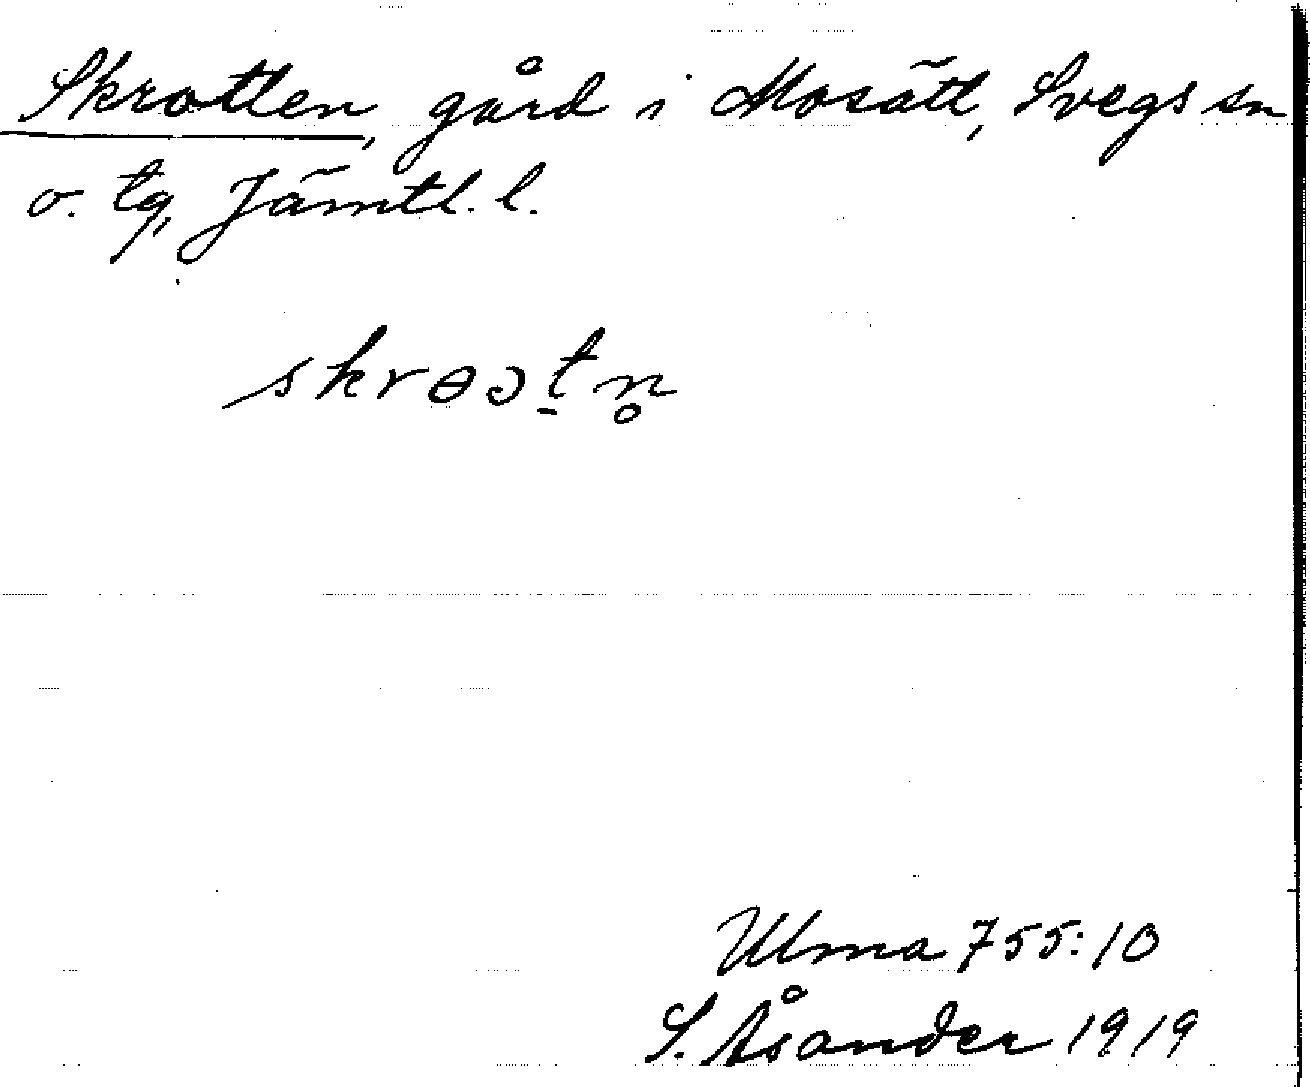 Skrotten, gård i Mosätt, Svegs sn
o. tg, Jämtl. l.
skrɵɔt̠n̥
Ulma 755:10
S. Åsander 1919